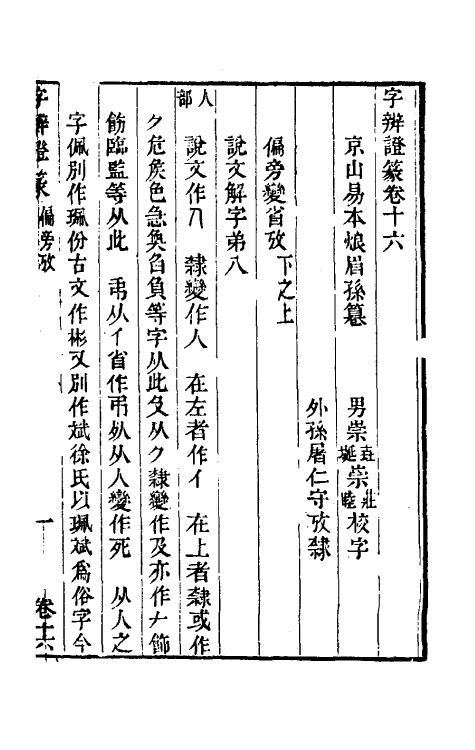 字辨證篆卷十六
京山易本烺眉孫篹
男崇垚崇莊崇梴崇睦校字
外孫屠仁守攷隸
偏旁變省攷下之上
說文解字弟八
人部
說文作𠆢 隸變作人 在左者作亻 在上者隸或作
⺈危矦色急奐臽負等字从此 㕛从⺈隸變作及亦作𠂇飾
飭臨監等从此 弔从亻省作弔 从人變作死 从人之
字佩別作珮份古文作彬又別作斌徐氏以珮斌爲俗字今
字辨證篆 偏旁攷 一 卷十六